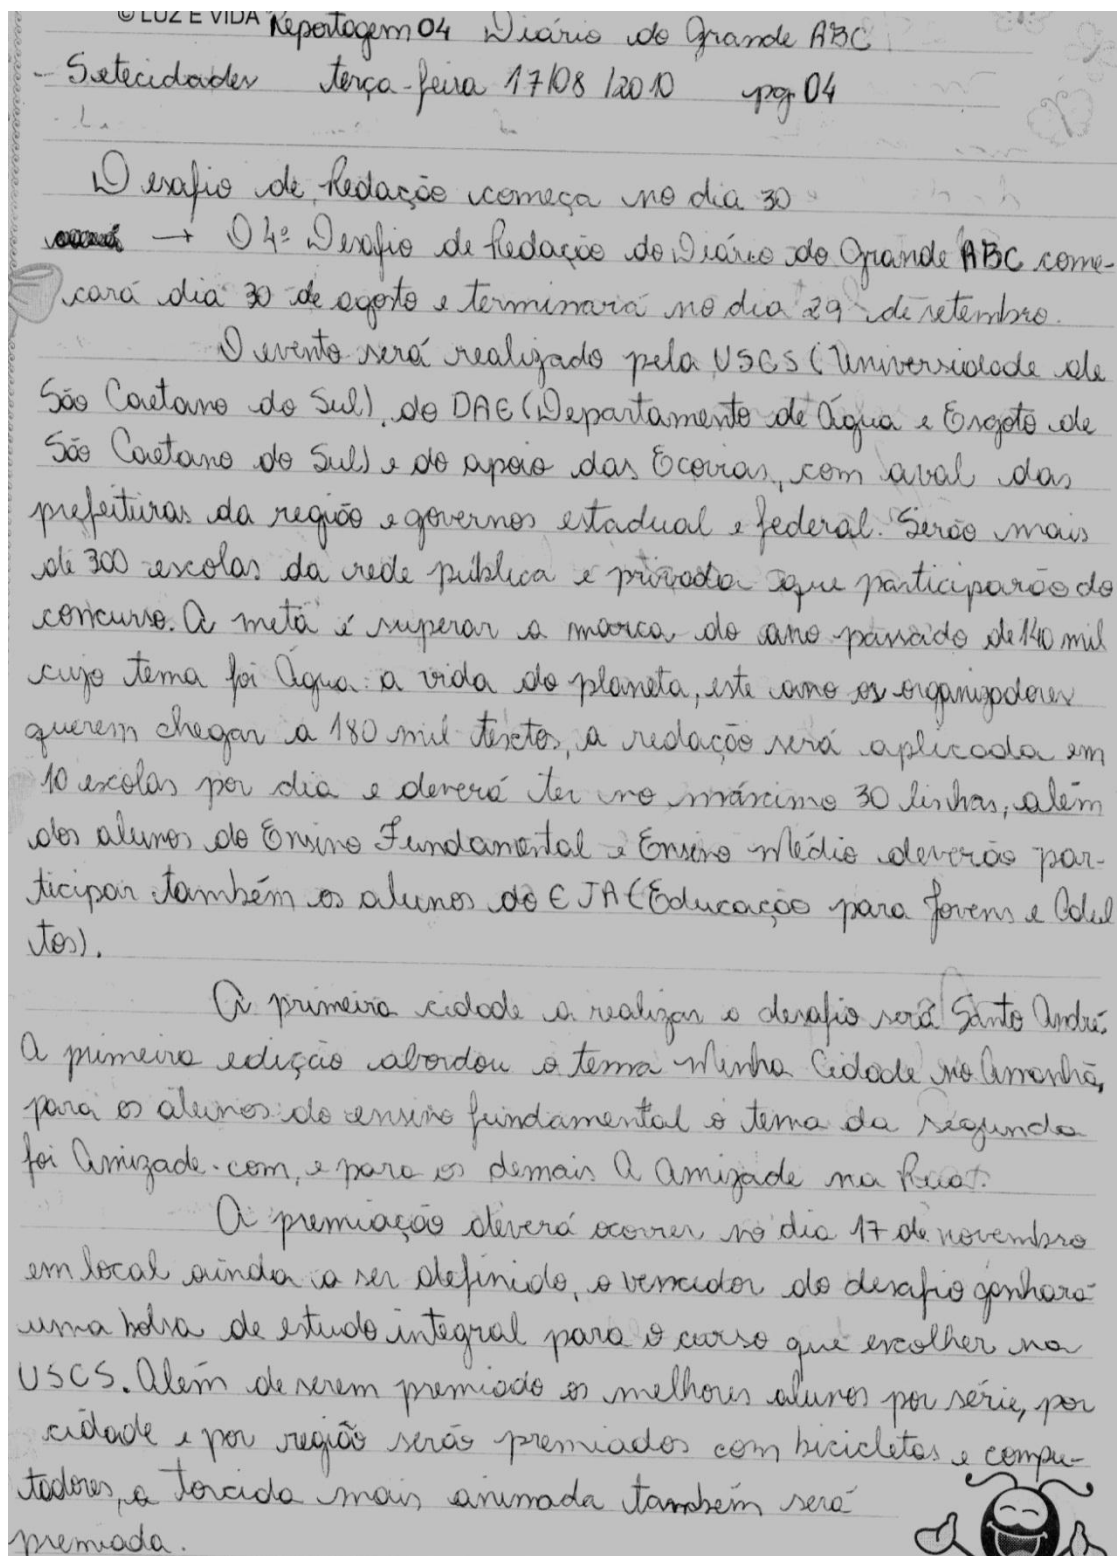 © LUZ E VIDA Reportagem 04 Diário do Grande ABC
- Setecidades terça-feira 17/08/2010 pg 04
Desafio de Redação começa no dia 30
→ O 4º Desafio de Redação do Diário do Grande ABC come-
cará dia 30 de agosto e terminará no dia 29 de setembro.
O evento será realizado pela USCS (Universidade de
São Caetano do Sul), do DAE (Departamento de Água e Esgoto de
São Caetano do Sul) e do apoio das Ecovias, com aval das
prefeituras da região e governos estadual e federal. Serão mais
de 300 escolas da rede pública e privada que participarão do
concurso. A meta é superar a marca do ano passado de 140 mil
cujo tema foi Água: a vida do planeta, este ano os organizadores
querem chegar a 180 mil textos, a redação será aplicada em
10 escolas por dia e deverá ter no máximo 30 linhas, além
dos alunos do Ensino Fundamental e Ensino Médio deverão par-
ticipar também os alunos do EJA (Educação para Jovens e Adul
tos).
A primeira cidade a realizar o desafio será Santo André.
A primeira edição abordou o tema Minha Cidade no Amanhã,
para os alunos do ensino fundamental o tema da segunda
foi Amizade.com, e para os demais A Amizade na Rua.
A premiação deverá ocorrer no dia 17 de novembro
em local ainda a ser definido, o vencedor do desafio ganhará
uma bolsa de estudo integral para o curso que escolher na
USCS. Além de serem premiado os melhores alunos por série, por
cidade e por região serão premiados com bicicletas e compu-
tadores, a torcida mais animada também será
premiada.